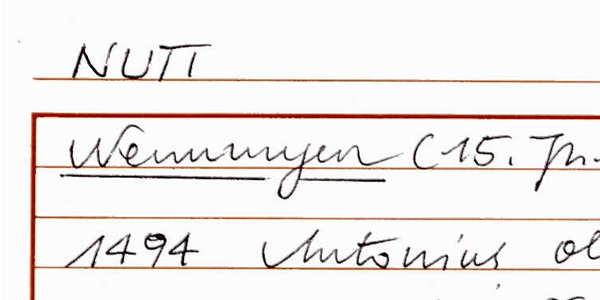 NUTT
Wemmingen (15. Jh.
1494 Antonius